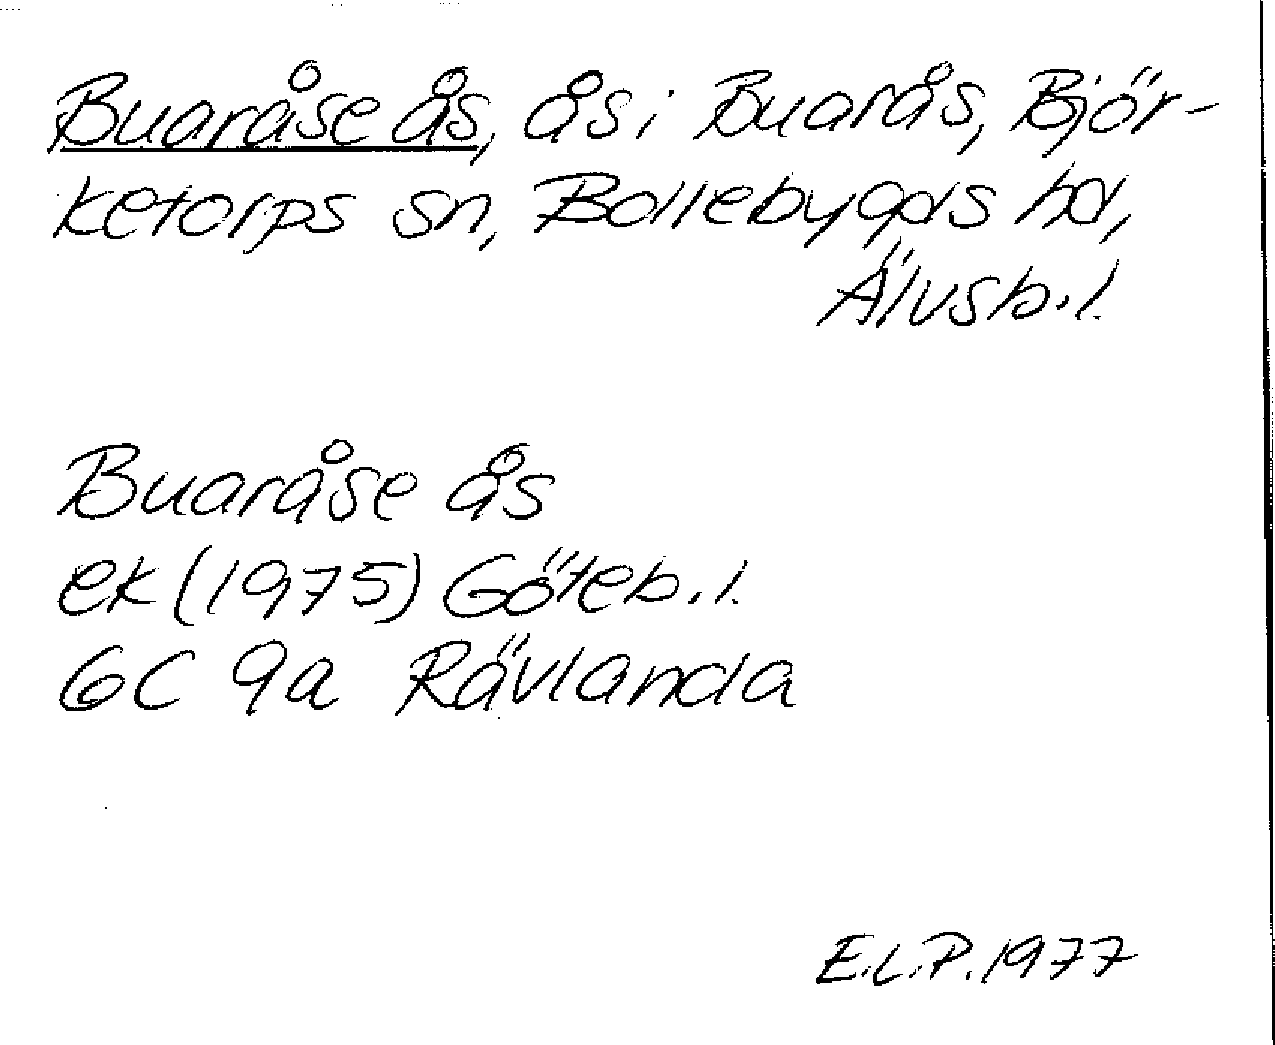 Buaråse ås, ås i Buarås, Björ-
ketorps sn, Bollebygds hd,
Älvsb. l.
Buaråse ås
ek (1975) Göteb. l.
6C 9a Rävlanda
E.L.P. 1977